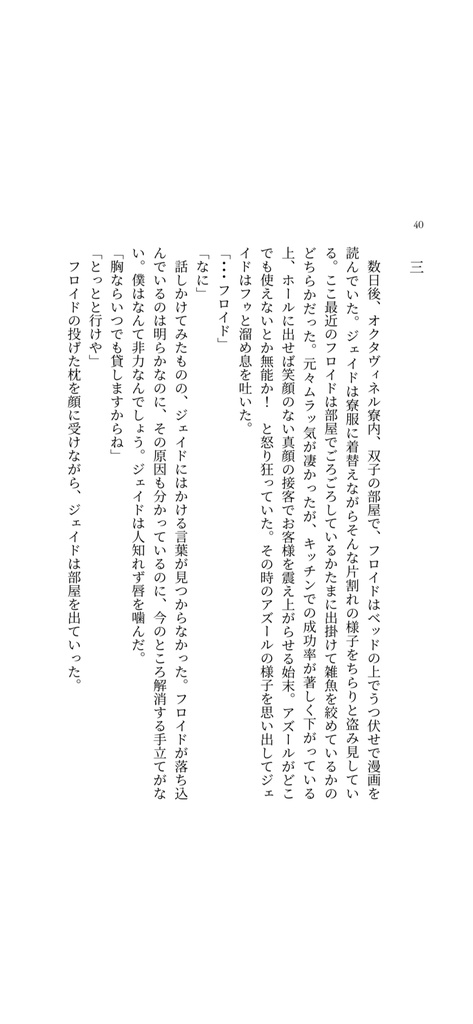 40
三
数日後、オクタヴィネル寮内、双子の部屋で、フロイドはベッドの上でうつ伏せで漫画を
読んでいた。ジェイドは寮服に着替えながらそんな片割れの様子をちらりと盗み見してい
る。ここ最近のフロイドは部屋でごろごろしているかたまに出掛けて雑魚を絞めているかの
どちらかだった。元々ムラッ気が凄かったが、キッチンでの成功率が著しく下がっている
上、ホールに出せば笑顔のない真顔の接客でお客様を震え上がらせる始末。アズールがどこ
でも使えないとか無能か!　と怒り狂っていた。その時のアズールの様子を思い出してジェ
イドはフゥと溜め息を吐いた。
「・・・フロイド」
「なに」
話しかけてみたものの、ジェイドにはかける言葉が見つからなかった。フロイドが落ち込
んでいるのは明らかなのに、その原因も分かっているのに、今のところ解消する手立てがな
い。僕はなんて非力なんでしょう。ジェイドは人知れず唇を噛んだ。
「胸ならいつでも貸しますからね」
「とっとと行けや」
フロイドの投げた枕を顔に受けながら、ジェイドは部屋を出ていった。